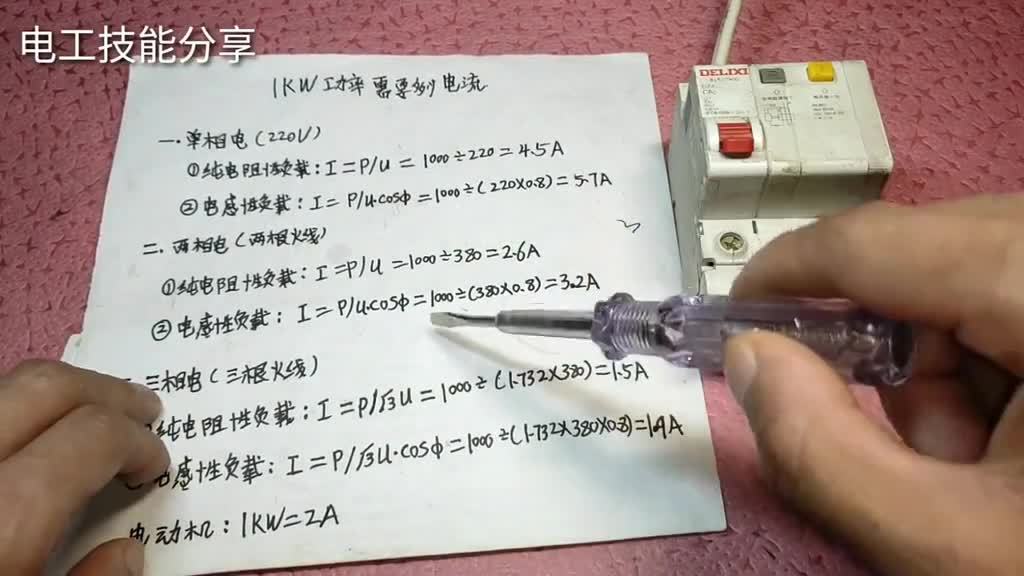 电工技能分享
1KW功率需要多少电流
一.单相电(220V)
①纯电阻性负载:I=P/U=1000÷220=4.5A
②电感性负载:I=P/U·cosφ=1000÷(220×0.8)=5.7A
二.两相电(两根火线)
①纯电阻性负载:I=P/U=1000÷380=2.6A
②电感性负载:I=P/U·cosφ=1000÷(380×0.8)=3.2A
三相电(三根火线)
纯电阻性负载:I=P/√3U=1000÷(1.732×380)=1.5A
电感性负载:I=P/√3U·cosφ=1000÷(1.732×380×0.8)=1.9A
电动机:1KW=2A
DELIXI